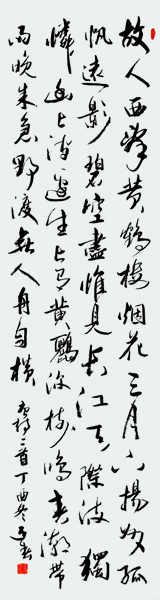 故人西辞黄鹤楼烟花三月下扬州孤
帆远影碧空尽惟见长江天际流独
怜幽草涧边生上有黄鹂深树鸣春潮带
雨晚来急野渡无人舟自横
二首丁酉冬